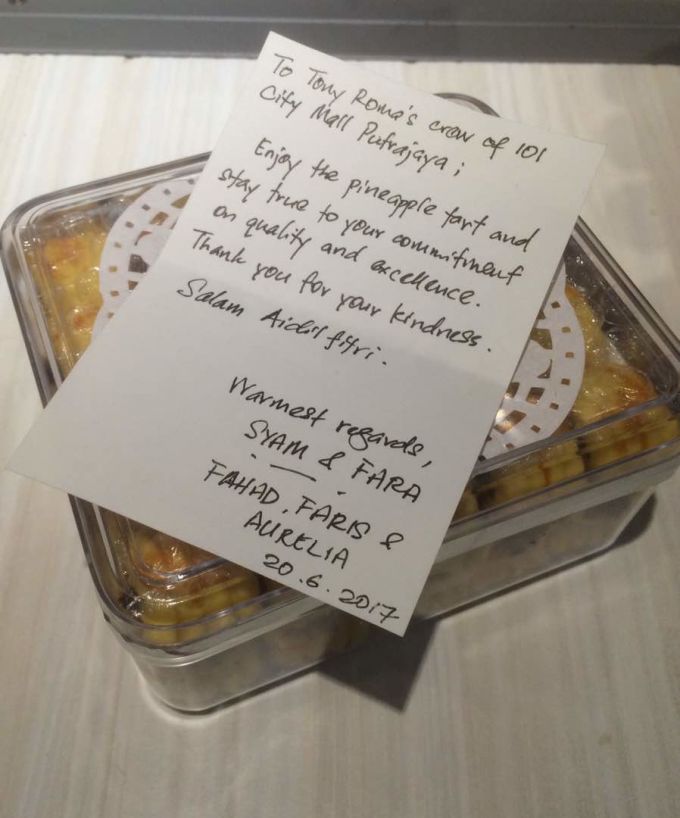 To Tony Roma's crew of 101
City Mall Putrajaya;
Enjoy the pineapple tart and
stay true to your commitment
on quality and excellence.
Thank you for your kindness.
Salam Aidilfitri.
Warmest regards,
SYAM & FARA
FAHAD, FARIS &
AURELIA
20.6.2017